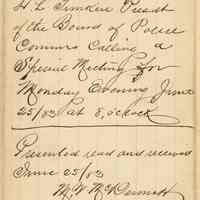 H. L. Timken Presdt
of the Board of Police
Commrs Calling a
Special Meeting for
Monday Evening June
25/83 at 8, o'clock
Presented read and received
June 25/83
M. W. McDermott